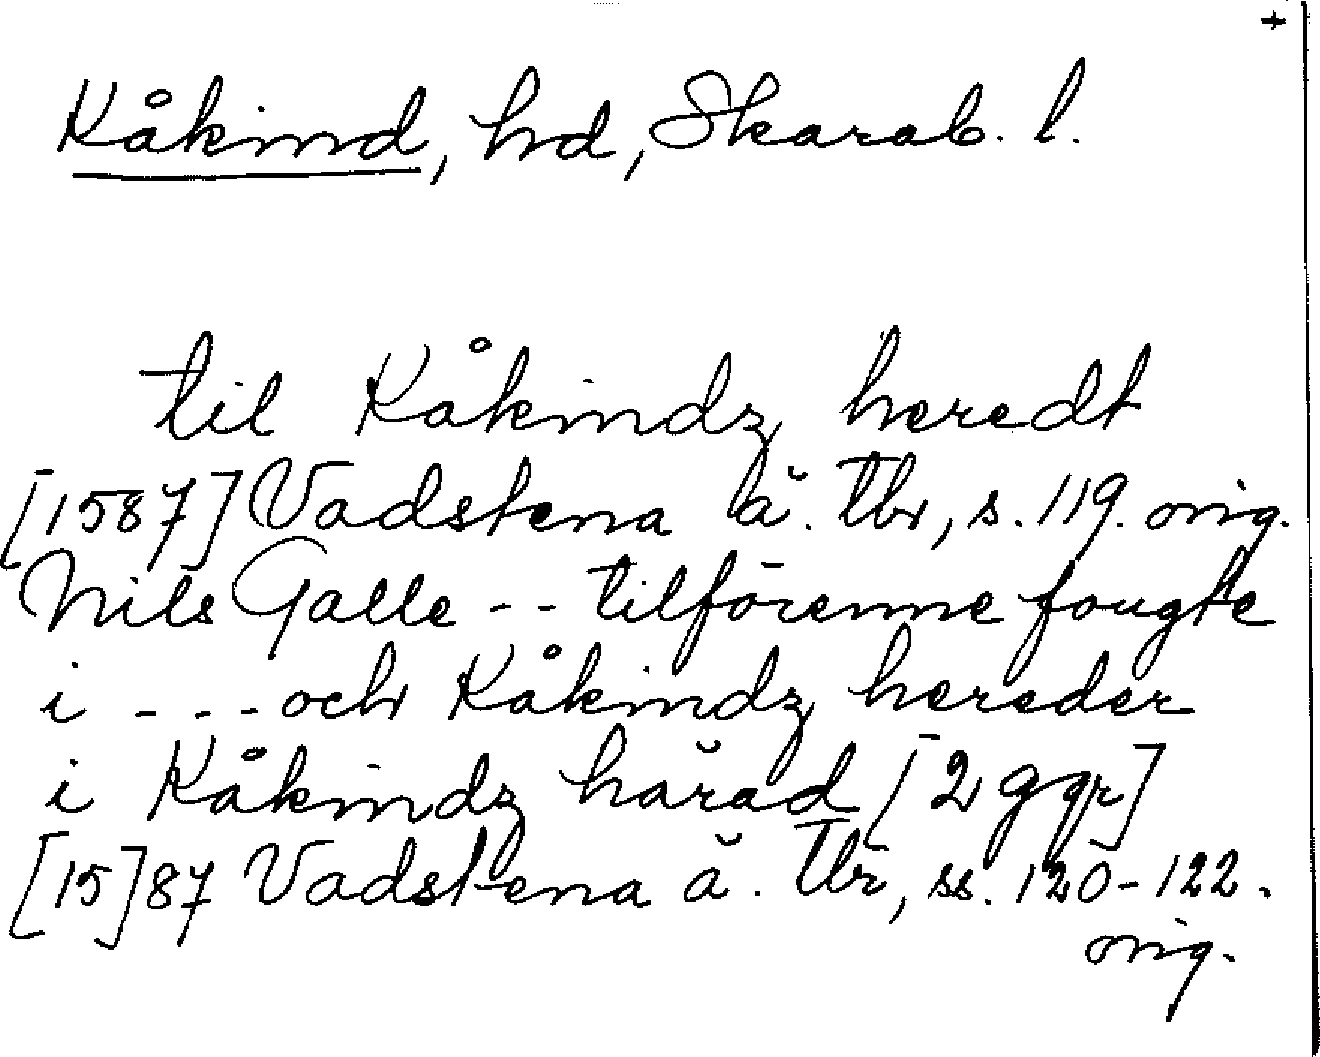 +
Kåkind, hd, Skarab. l.
til Kåkindz heredt
[1587] Vadstena ä. tbr, s. 119. orig.
Nils Galle -- tilförenne fougte
i --- och Kåkindz hereder
i Kåkindz härad [2 ggr]
[15]87 Vadstena ä. Tbr, ss. 120-122.
orig.